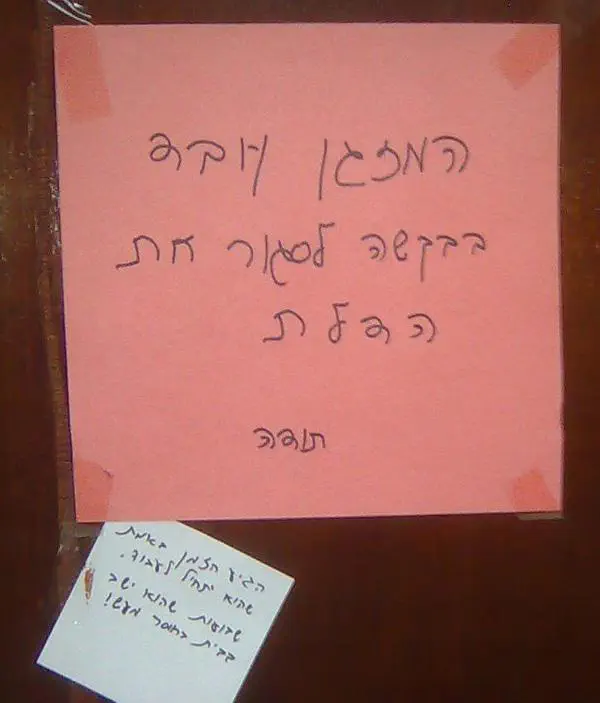 המזגן עובד
בבקשה לסגור את
הדלת
תודה
הגיע הזמן באמת
שהוא יתחיל לעבוד.
שבועות שהוא ישב
בבית בחוסר מעש!